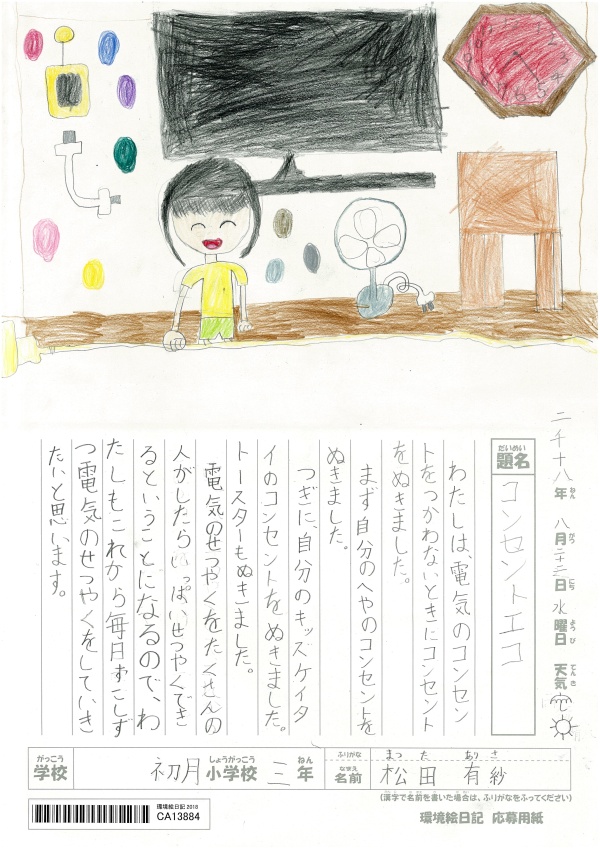 二千十八年 八月二十二日 水曜日 天気
ねん がつ にち ようび てんき
だいめい
題名 コンセントエコ
わたしは、電気のコンセン
トをつかわないときにコンセント
をぬきました。
まず自分のへやのコンセントを
ぬきました。
つぎに、自分のキッズケイタ
イのコンセントをぬきました。
トースターもぬきました。
電気のせつやくをたくさんの
人がしたらいっぱいせつやくでき
るということになるので、わ
たしもこれから毎日すこしず
つ電気のせつやくをしていき
たいと思います。
がっこう しょうがっこう ねん
学校 初月小学校 三年
ふりがな まつ た あり さ
なまえ
名前 松田 有紗
(漢字で名前を書いた場合は、ふりがなをふってください)
環境絵日記 応募用紙
環境絵日記 2018
CA13884